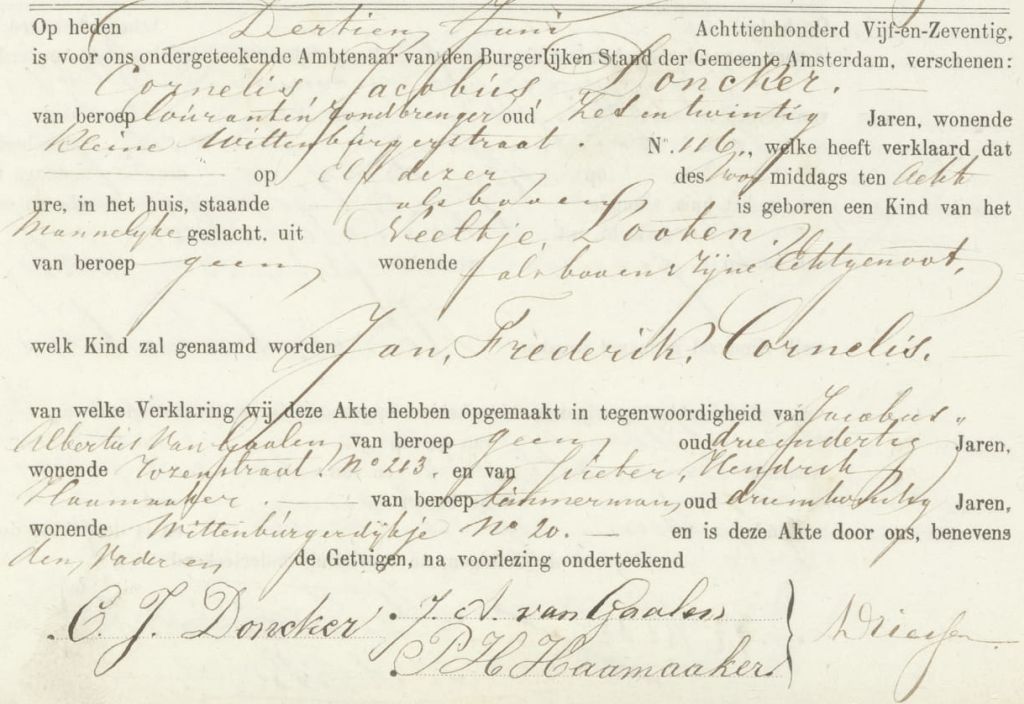 Op heden Dertien Juni Achttienhonderd Vijf-en-Zeventig,
is voor ons ondergeteekende Ambtenaar van den Burgerlijken Stand der Gemeente Amsterdam, verschenen:
Cornelis Jacobus Doncker.
van beroep Couranten rondbrenger oud Zes en twintig Jaren, wonende
Kleine Wittenburgerstraat. No. 116., welke heeft verklaard dat
op Elf dezer des voor middags ten Acht
ure, in het huis, staande als boven is geboren een Kind van het
Mannelijke geslacht. uit Neeltje, Looten.
van beroep geen wonende als boven zijne Echtgenoot,
welk Kind zal genaamd worden Jan, Frederik, Cornelis.
van welke Verklaring wij deze Akte hebben opgemaakt in tegenwoordigheid van Jacobus
Albertus van Gaalen van beroep geen oud drieendertig Jaren,
wonende Rozenstraat. No 213. en van Pieter, Hendrik
Haamaaker. van beroep timmerman oud drieentwintig Jaren,
wonende Wittenburgerdijkje No 20. en is deze Akte door ons, benevens
den Vader en de Getuigen, na voorlezing onderteekend
C. J. Doncker J. A. van Gaalen
P H Haamaaker